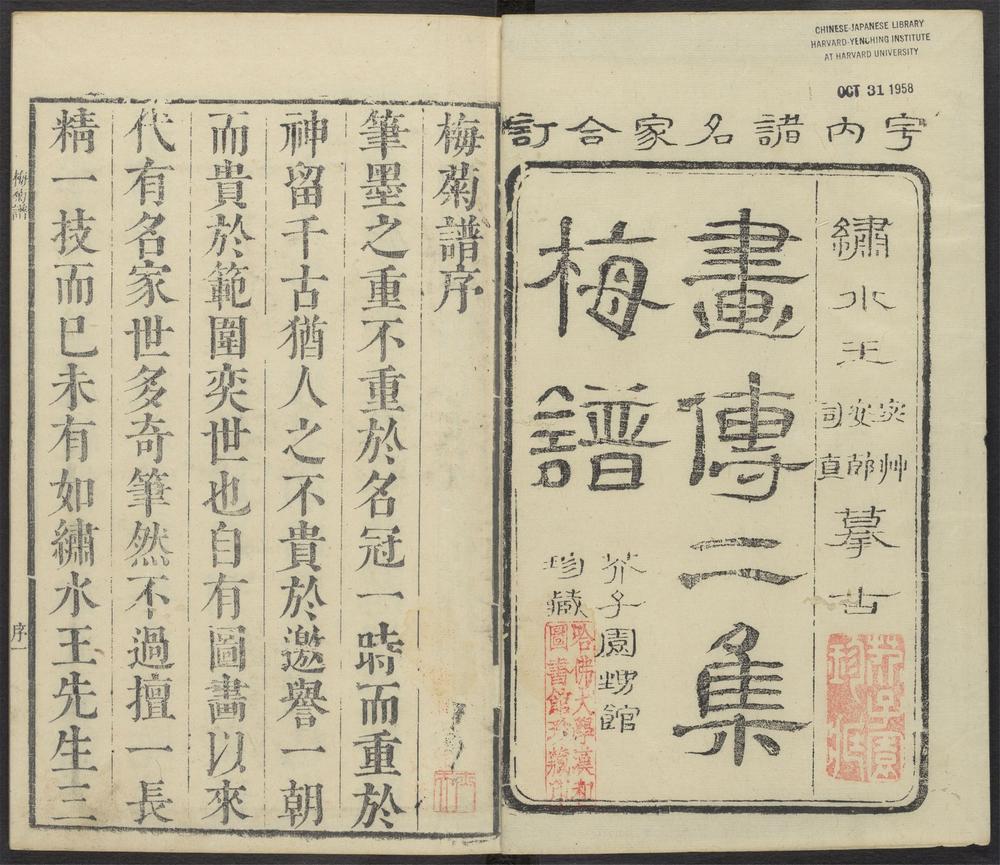 CHINESE-JAPANESE LIBRARY
HARVARD-YENCHING INSTITUTE
AT HARVARD UNIVERSITY
OCT 31 1958
宇內諸名家合訂
繡水王宓艸安節司直摹古
畫傳二集
梅譜
芥子園甥館
珍藏
哈佛大學漢和
圖書館珍藏印
梅菊譜序
筆墨之重不重於名冠一時而重於
神留千古猶人之不貴於邀譽一朝
而貴於範圍奕世也自有圖畫以來
代有名家世多奇筆然不過擅一長
精一技而已未有如繡水王先生三
梅菊譜
序一